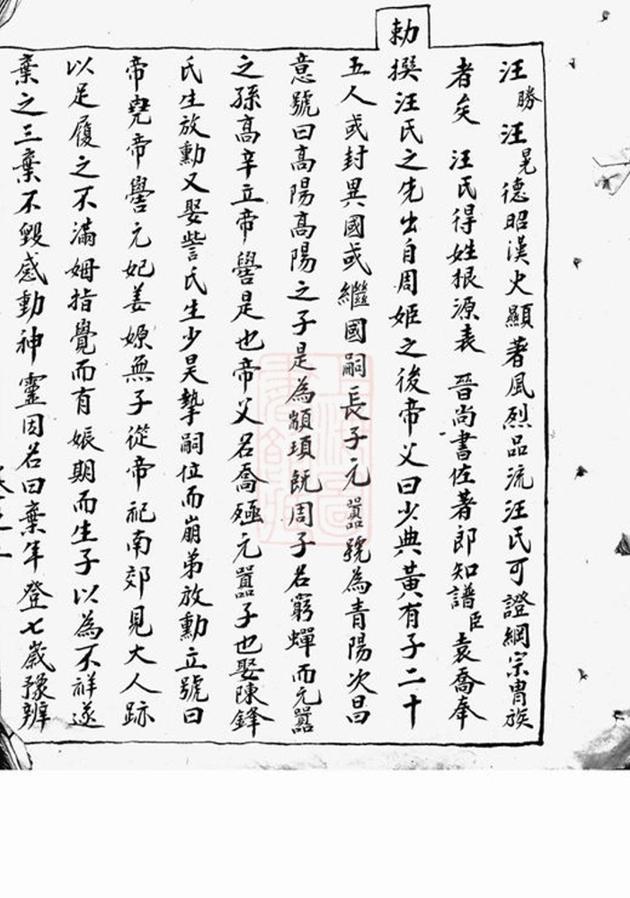 汪勝汪晃德昭漢火顯著風烈品流汪氏可證綱宗胄族
者矣 汪氏得姓根源表 晉尚書佐著郎知譜臣袁喬奉
勅撰汪氏之先出自周姬之後帝父曰少典黃有子二十
五人或封異國或繼國嗣長子元囂號為青陽次曰昌
意號曰高陽高陽之子是為顓頊旣周子名窮蟬而元囂
之孫高辛立帝嚳是也帝父名喬極元囂子也娶陳鋒
氏生放勳又娶訾氏生少昊摯嗣位而崩弟放勳立號曰
帝堯帝嚳元妃姜嫄無子從帝祀南郊見大人跡
以足履之不滿姆指覺而有娠期而生子以為不祥遂
棄之三棄不毀感動神靈因名曰棄年登七歲豫辨